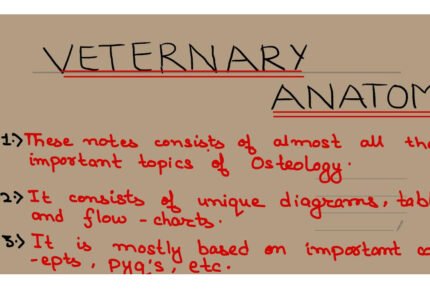 VETERNARY
ANATOM
1.) These notes consists of almost all the
important topics of Osteology.
2.) It consists of unique diagrams, tabl
and flow-charts.
3.) It is mostly based on important co
-epts, PYQ's, etc.